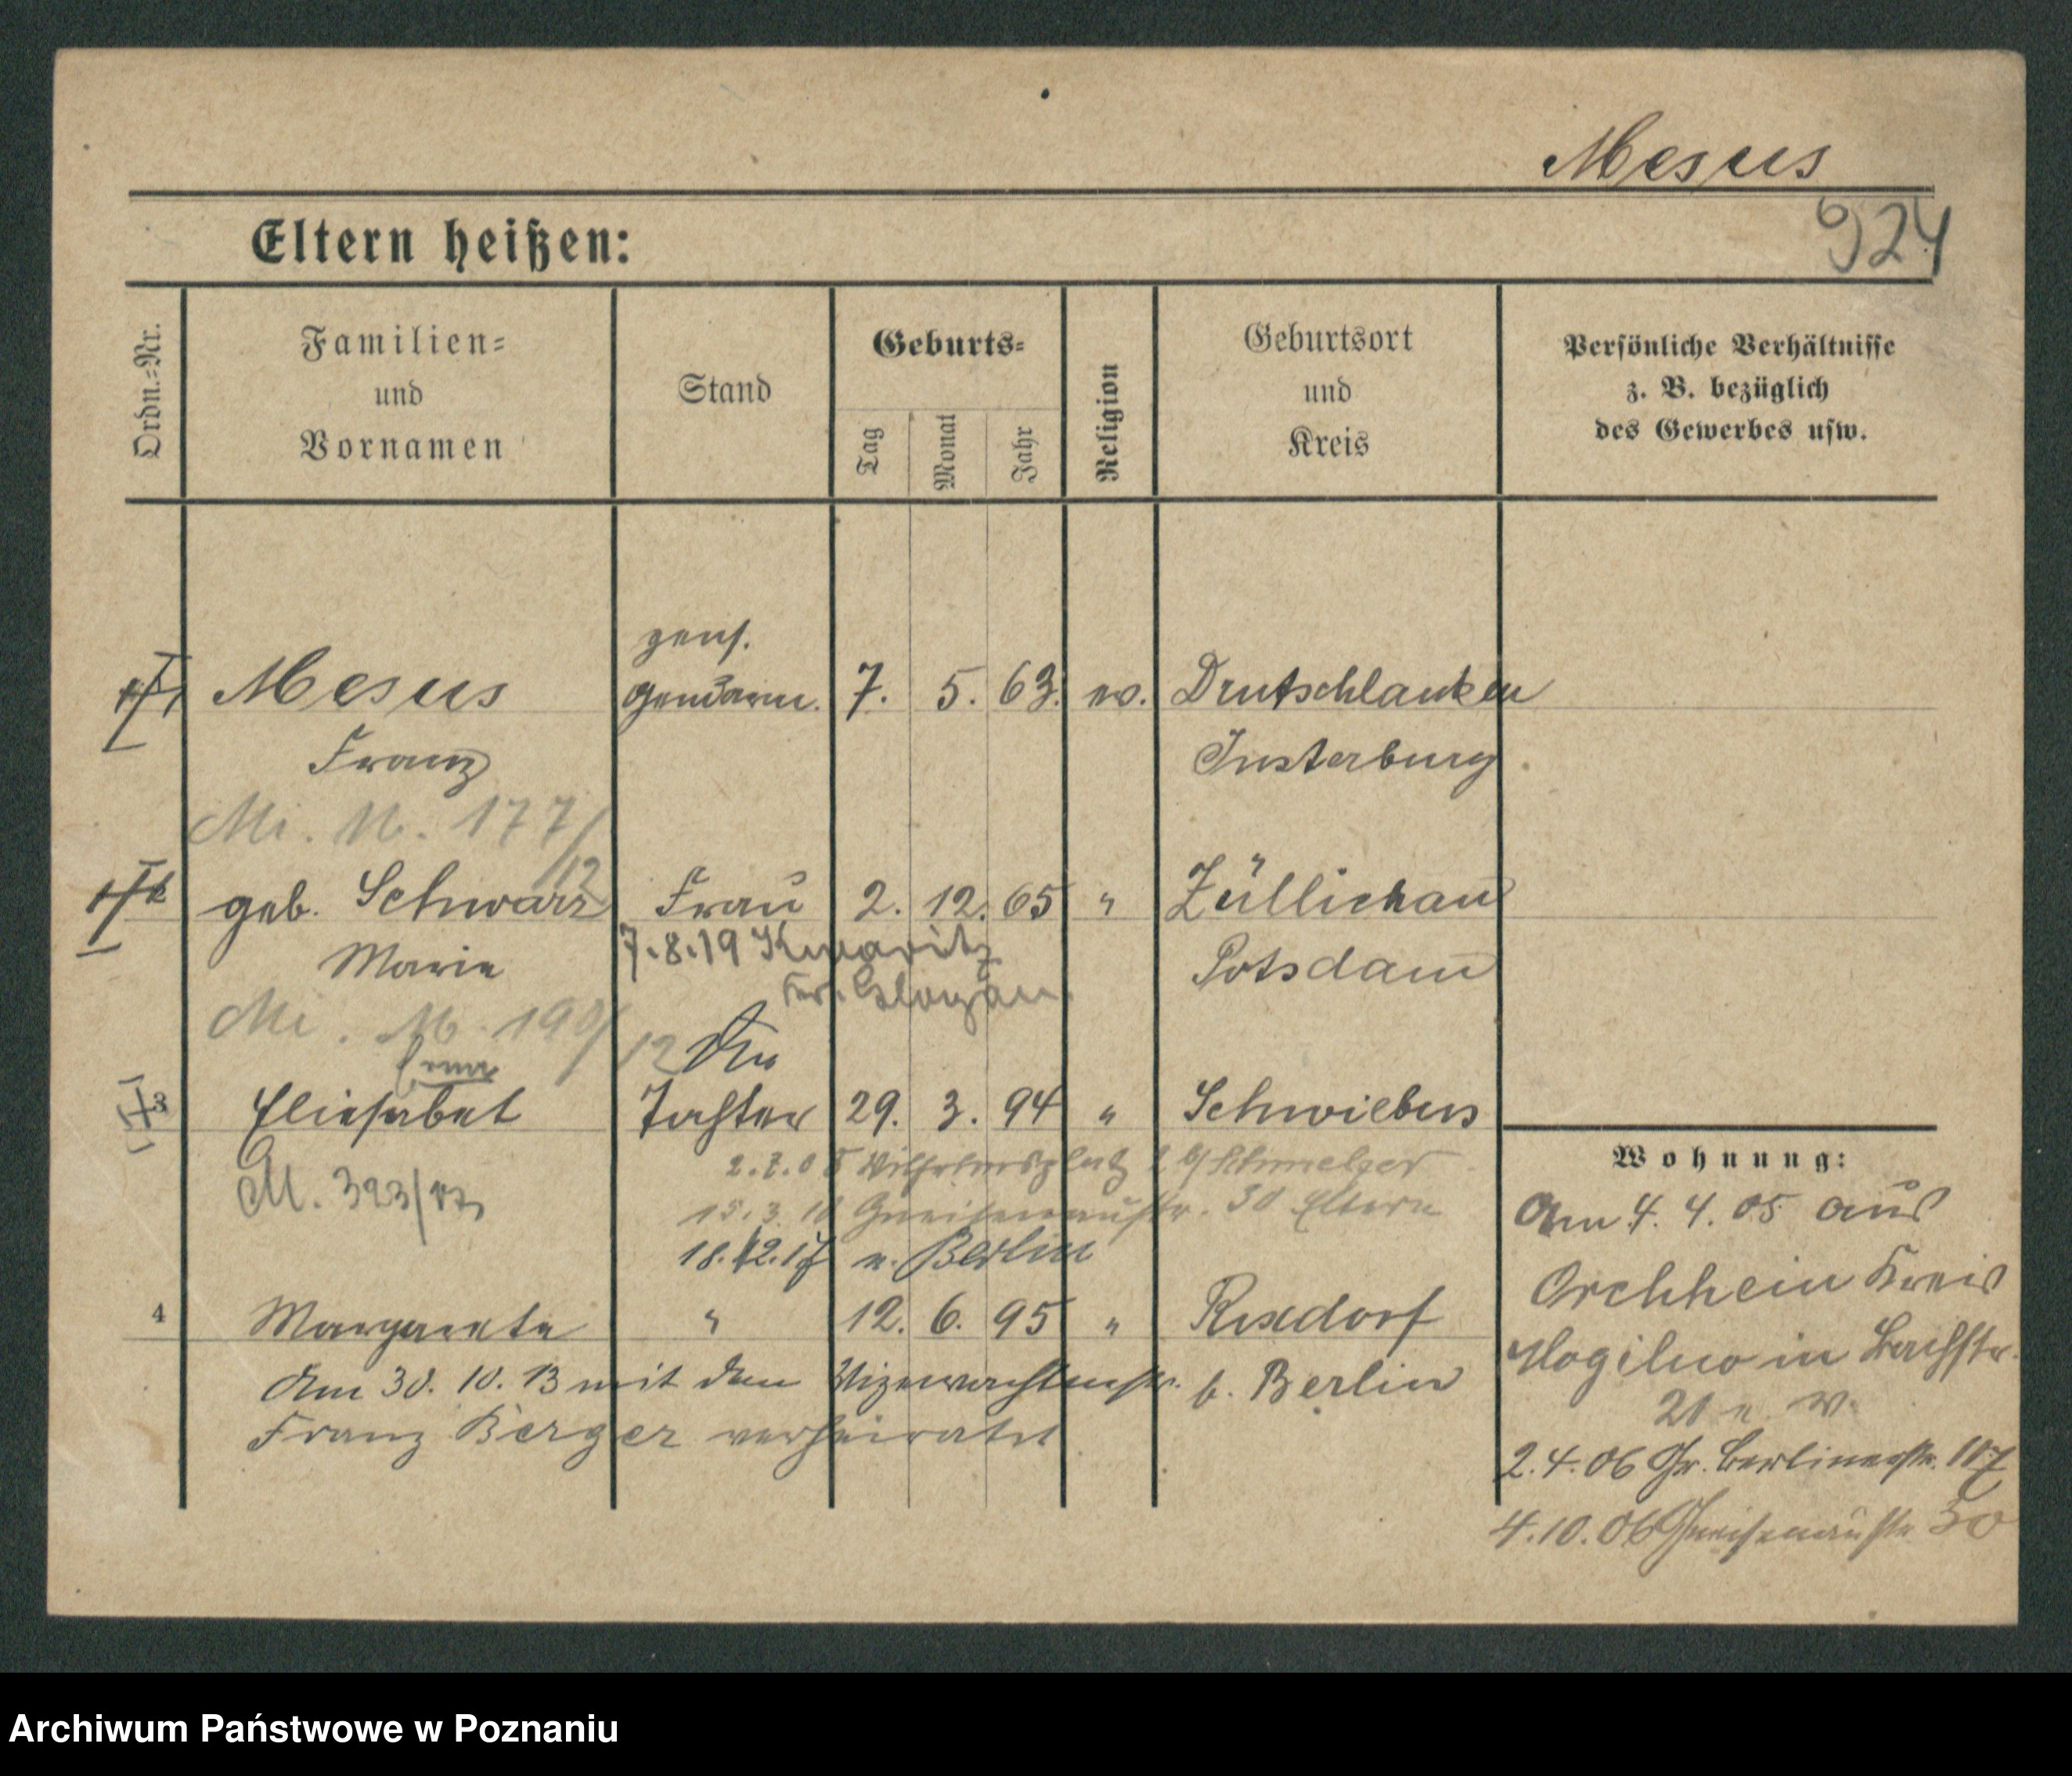 Mesus
924
Eltern heißen:
Ordn.-Nr.
Familien-
und
Vornamen
Stand
Geburts-
Tag
Monat
Jahr
Religion
Geburtsort
und
Kreis
Persönliche Verhältnisse
z. B. bezüglich
des Gewerbes usw.
pens.
1 Mesus Gendarm. 7. 5. 63. ev. Drutschlauken
Franz Insterburg
Mi. N. 177/12
2 geb. Schwarz Frau 2. 12. 65 " Züllichau
7.8.19 Kwaritz
Marie Potsdam
Kr. Glogau.
Mi. M. 190/12
Erna
3 Eliesabet Tochter 29. 3. 94 " Schwiebus
2.7.08 Wilhelmsplatz Schmelzer
M. 323/17
15.3.10 Gneisenaustr. 30 Eltern
18.12.17 n. Berlin
4 Margarete " 12. 6. 95 " Rixdorf
Am 30. 10. 13 mit dem Vizewachtmstr. b. Berlin
Franz Berger verheiratet
Wohnung:
Am 4. 4. 05 aus
Orchheim Kreis
Mogilno in Bachstr.
21
2.4.06 Gr. Berlinerstr. 107
4.10.06 Gneisenaustr. 30
Archiwum Państwowe w Poznaniu